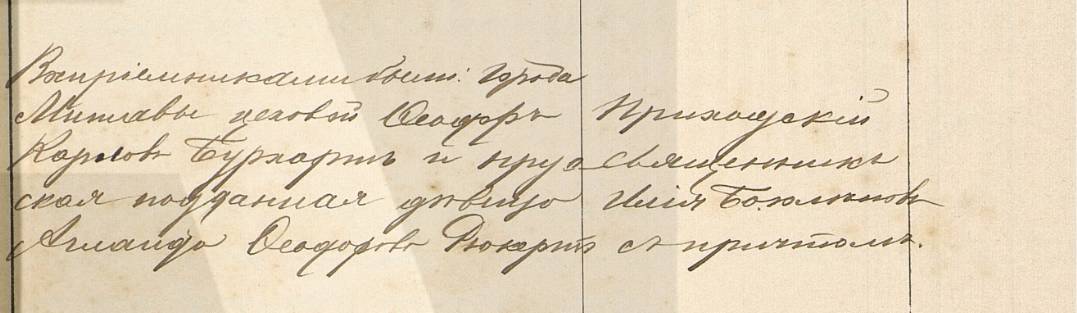 Воспріемниками были: города
Митавы цеховой Ѳеодоръ
Карловъ Бурхартъ и прус-
ская подданная дѣвица
Ѳеодорова
Приходскій
священникъ
Илія
съ причтомъ.